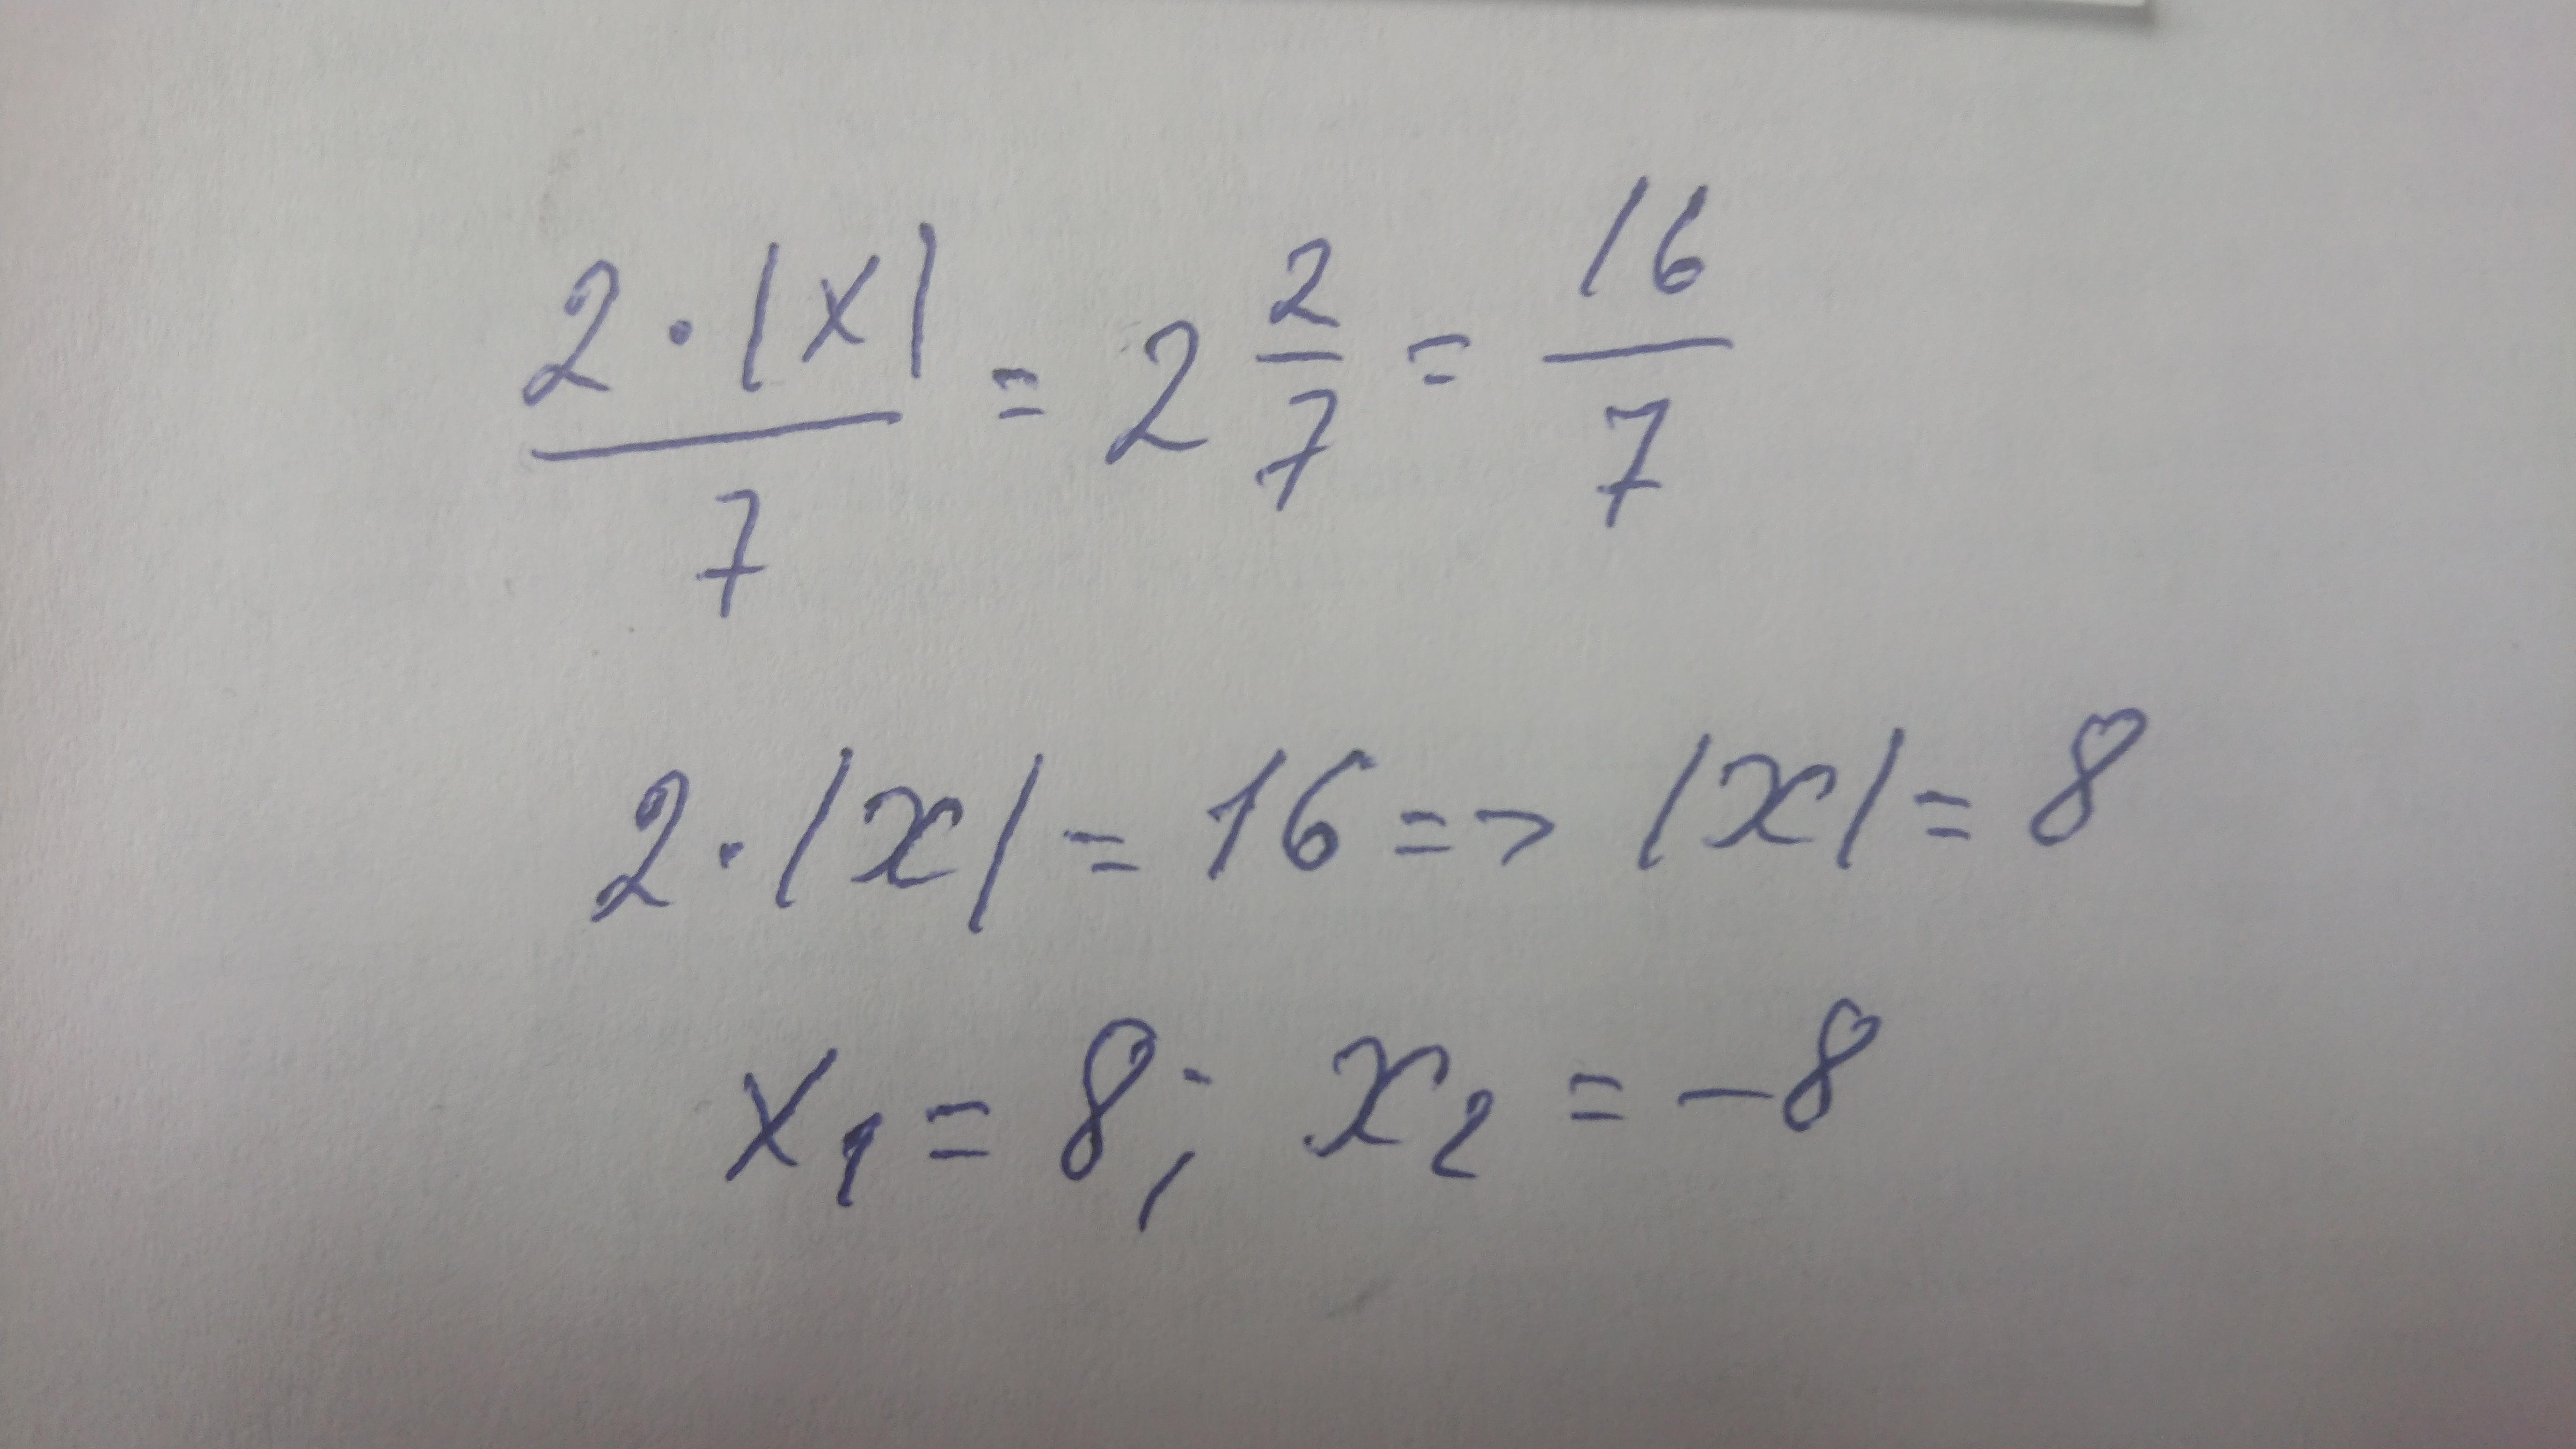 2 · |x| / 7 = 2 2/7 = 16/7
2 · |x| = 16 => |x| = 8
x₁ = 8; x₂ = -8